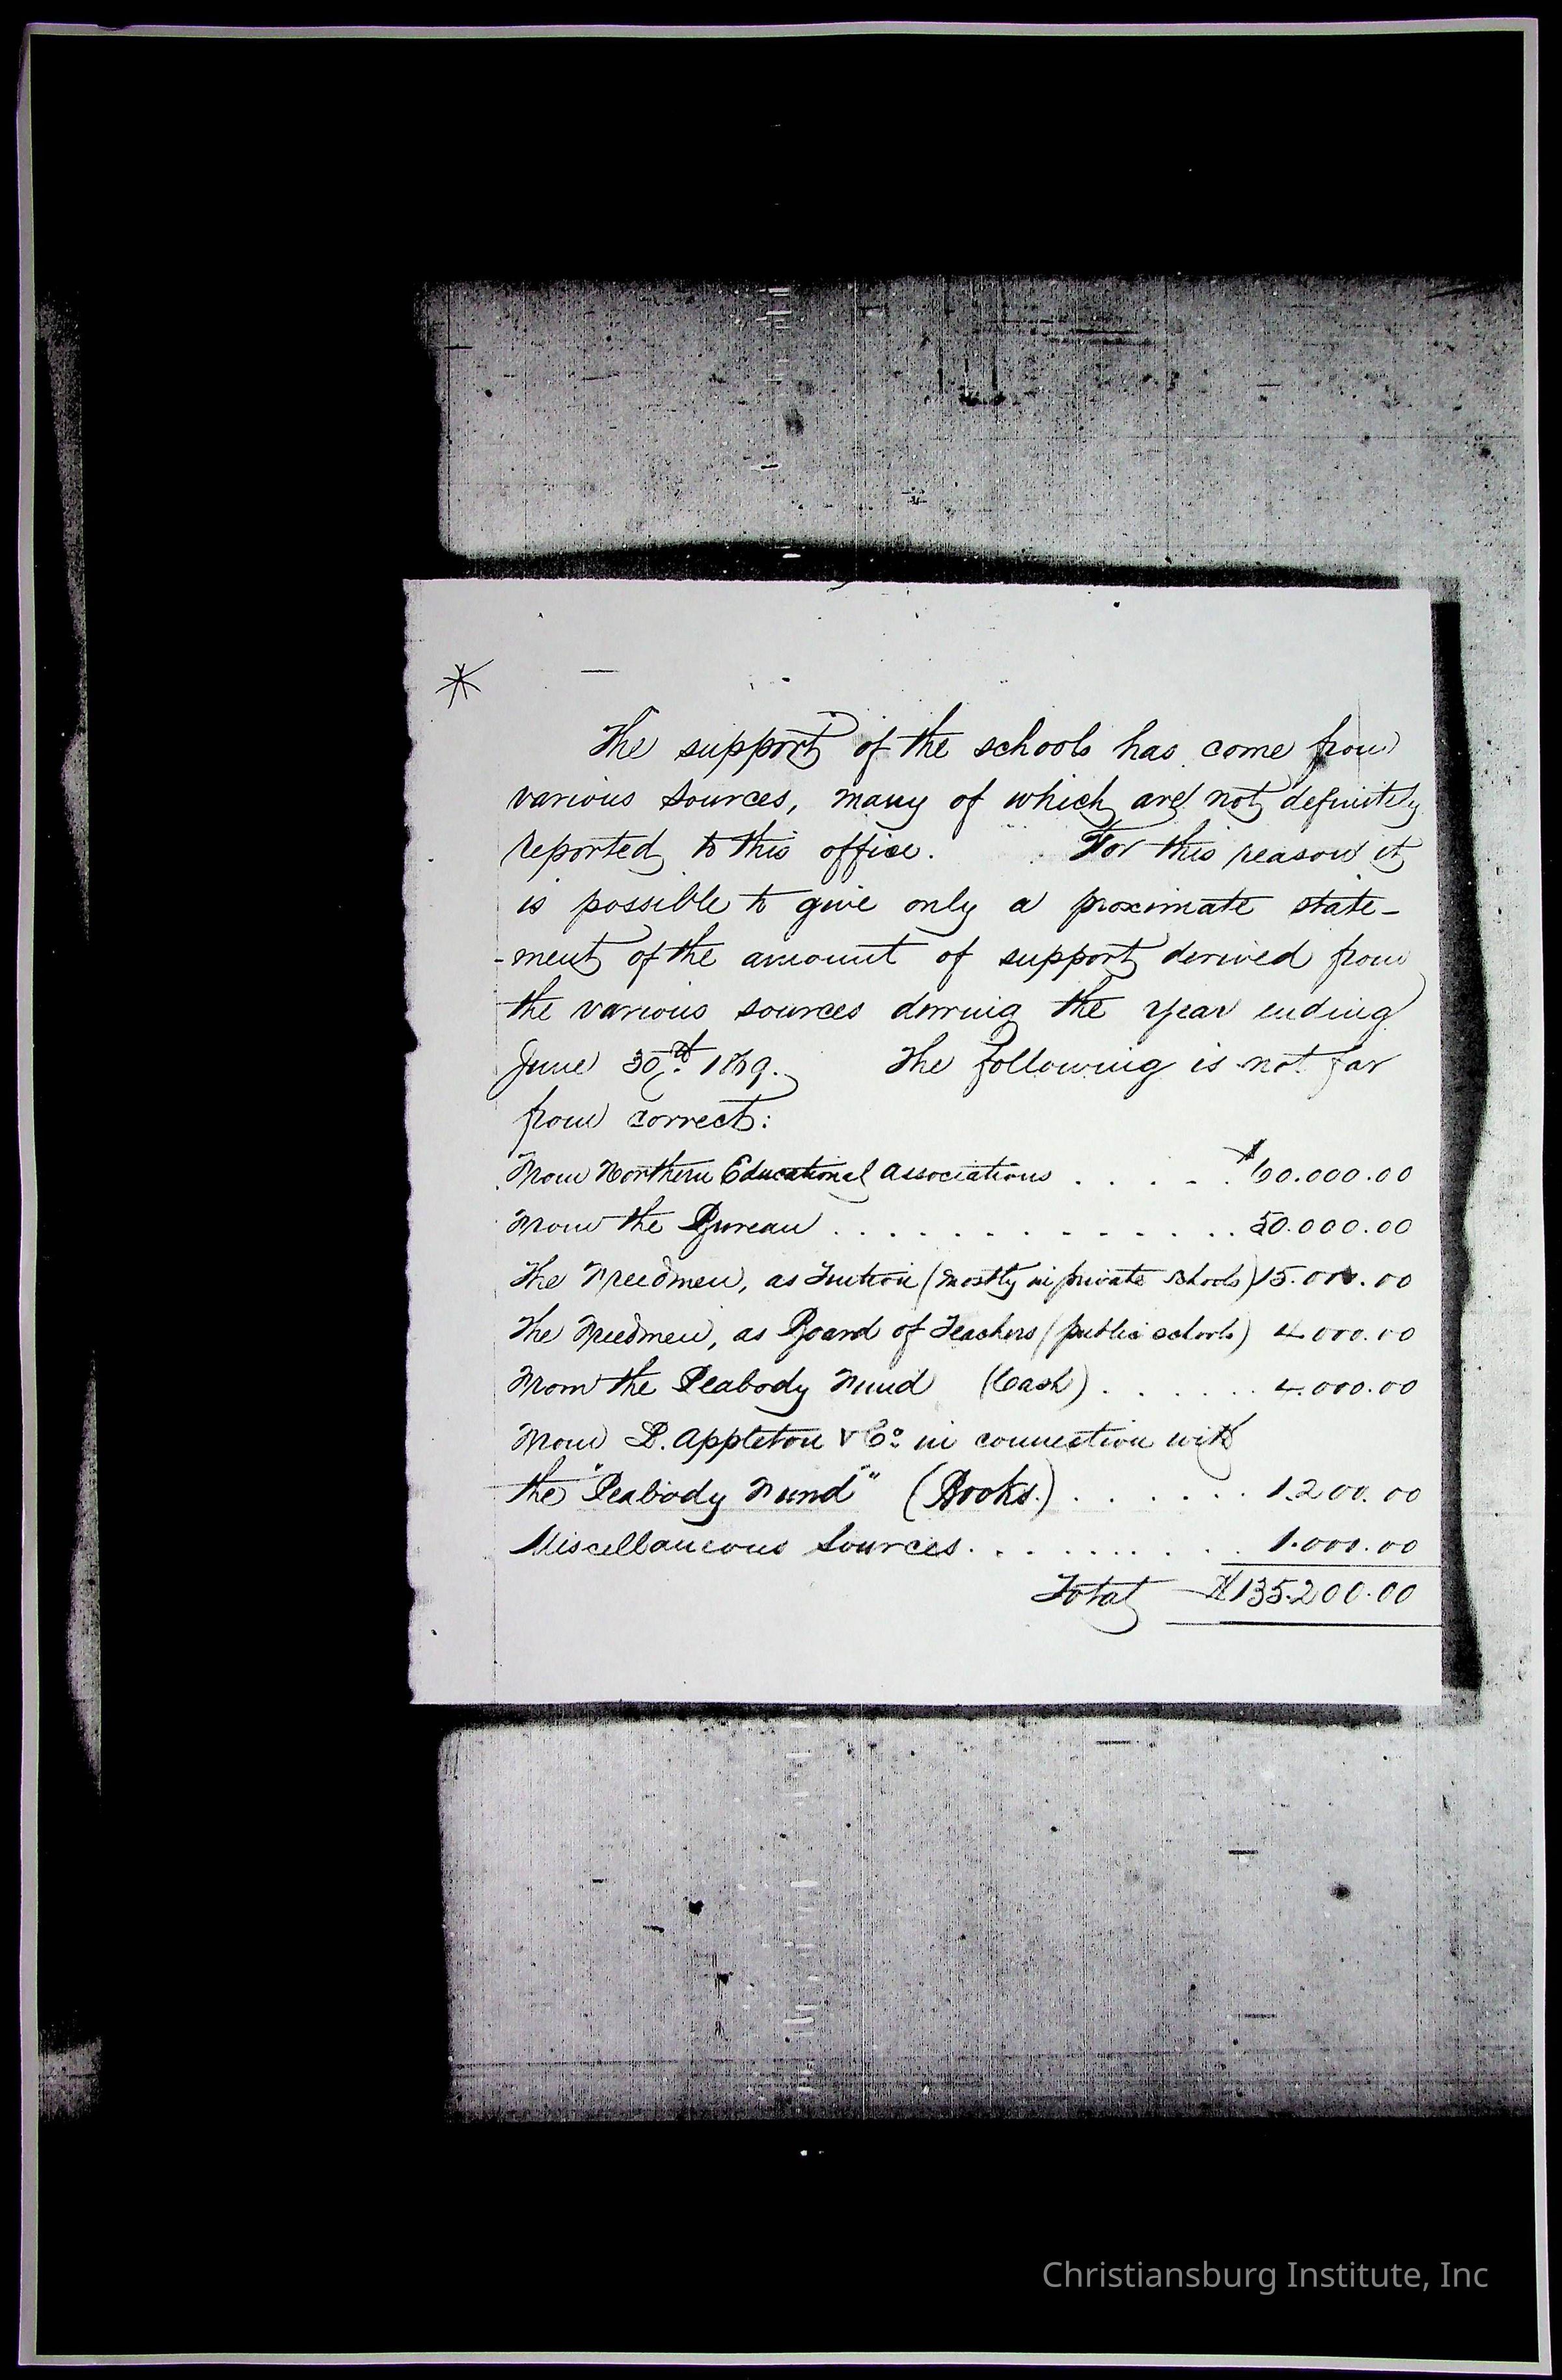 The support of the schools has come from
various sources, many of which are not definitely
reported to this office. For this reason it
is possible to give only a proximate state-
-ment of the amount of support derived from
the various sources during the year ending
June 30th 1869. The following is not far
from correct:
From Northern Educational Associations . . . . . $60.000.00
From the Bureau . . . . . . . . . . . . . . 50.000.00
The Freedmen, as Tuition (mostly in private schools) 15.000.00
The Freedmen, as Board of Teachers (public schools) 4.000.00
From the Peabody Fund (Cash) . . . . . . 4.000.00
From D. Appleton & Co. in connection with
the "Peabody Fund" (Books.) . . . . . . 1.200.00
Miscellaneous Sources. . . . . . . . . . 1.000.00
Total $135.200.00
Christiansburg Institute, Inc